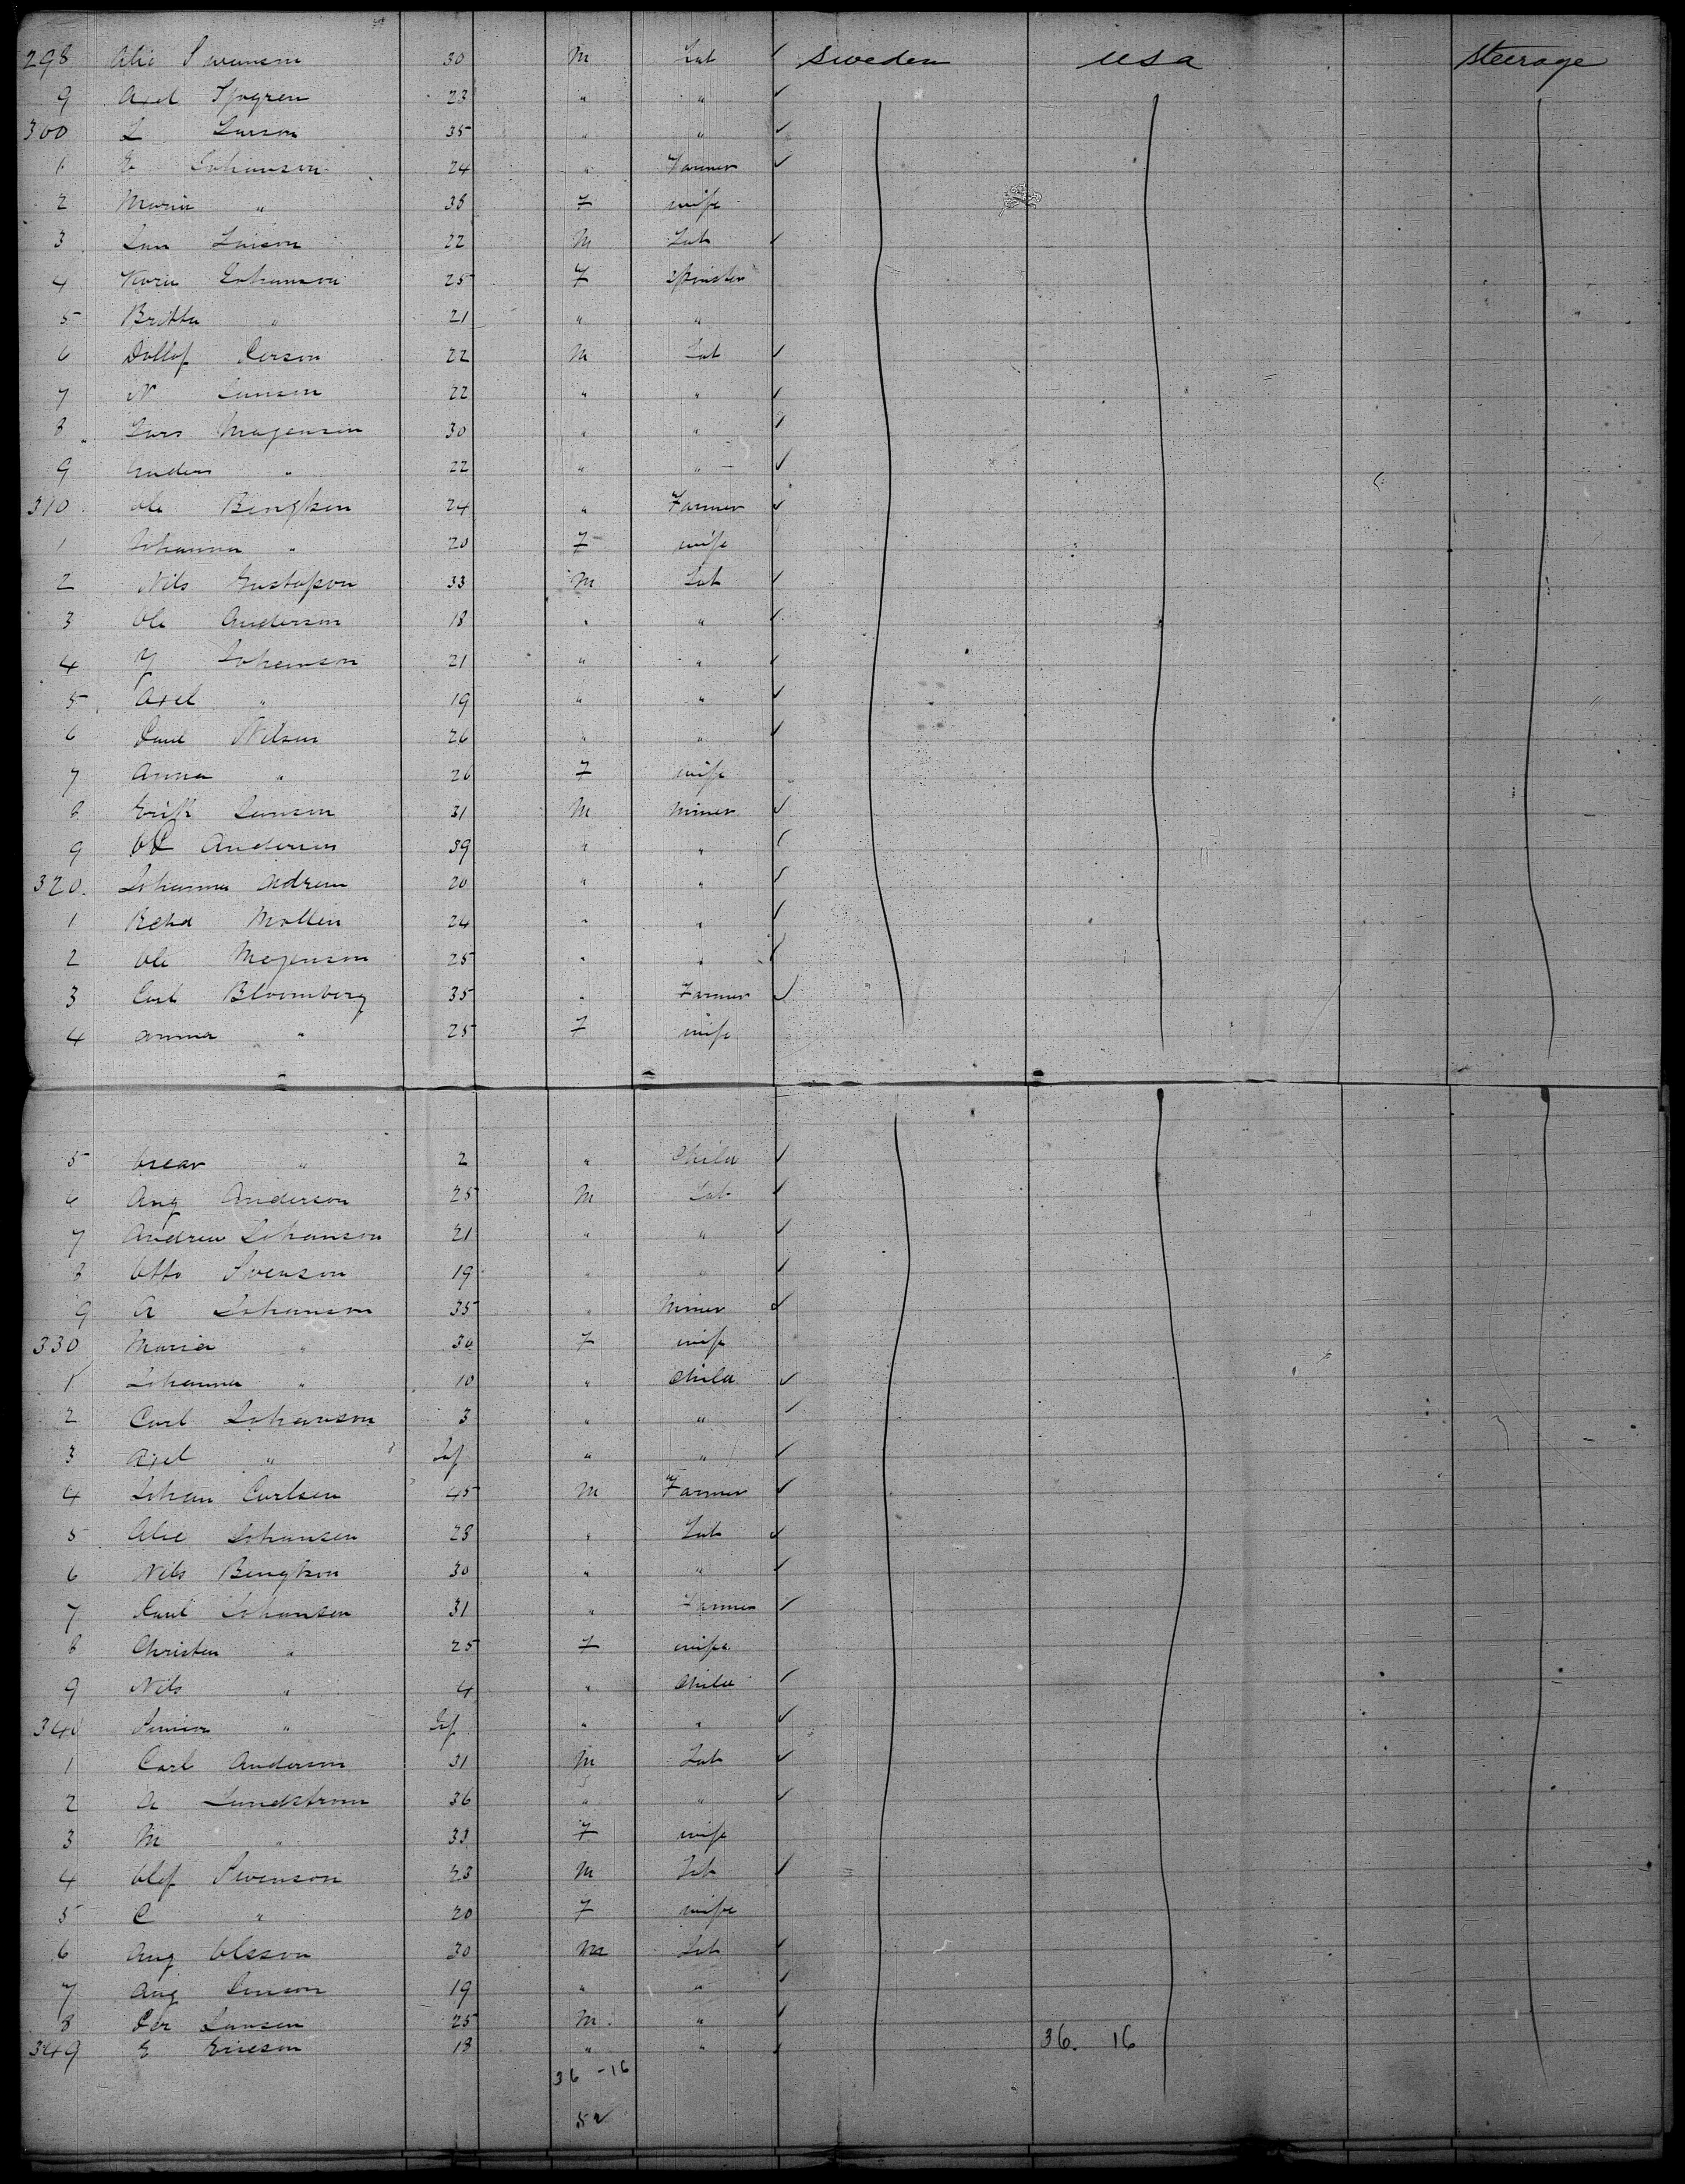 298 Alic Swanson 30 M Lab ✓ Sweden USA Steerage
9 Axel Sjogren 23 " " ✓
300 L Larson 35 " " ✓
1 E Johanson 24 " Farmer ✓
2 Maria " 35 F wife
3 Lars Larson 22 M Lab ✓
4 Karin Johanson 25 F Spinster
5 Britta " 21 " "
6 Dollof Person 22 M Lab ✓
7 N Lanson 22 " " ✓
8 Lars Mogenson 30 " " ✓
9 Anders " 22 " " ✓
310 Ole Bengtson 24 " Farmer ✓
1 Johanna " 20 F wife
2 Nils Gustafson 33 M Lab ✓
3 Ole Anderson 18 " " ✓
4 Johanson 21 " " ✓
5 Axel " 19 " " ✓
6 Paul Nelson 26 " " ✓
7 Anna " 26 F wife
8 Erik Lanson 31 M Miner ✓
9 Anderson 39 " " ✓
320 Johanna 20 " " ✓
1 Mollen 24 " " ✓
2 Ole Mogenson 25 " " ✓
3 Carl Bloomberg 35 " Farmer ✓
4 Anna " 25 F wife
5 Oscar " 2 " Child ✓
6 Aug Anderson 25 M Lab ✓
7 Andrew Johanson 21 " " ✓
8 Otto Svenson 19 " " ✓
9 A Johanson 35 " Miner ✓
330 Maria " 30 F wife
1 Johanna " 10 " Child ✓
2 Carl Johanson 3 " " ✓
3 Axel " Inf " " ✓
4 Johan Carlson 45 M Farmer ✓
5 Alic Johansen 28 " Lab ✓
6 Nils Bengtson 30 " " ✓
7 Paul Johansen 31 " Farmer ✓
8 Christen " 25 F wife
9 Nils " 4 " Child ✓
340 " Inf " " ✓
1 Carl Anderson 31 M Lab ✓
2 A Lundstrom 36 " " ✓
3 M " 33 F wife
4 Olof Swenson 23 M Lab ✓
5 C " 20 F wife
6 Aug Olsson 30 M Lab ✓
7 Aug 19 " " ✓
8 Per Lansen 25 M " ✓
349 E Ericson 18 " " ✓ 36. 16
36 - 16
52